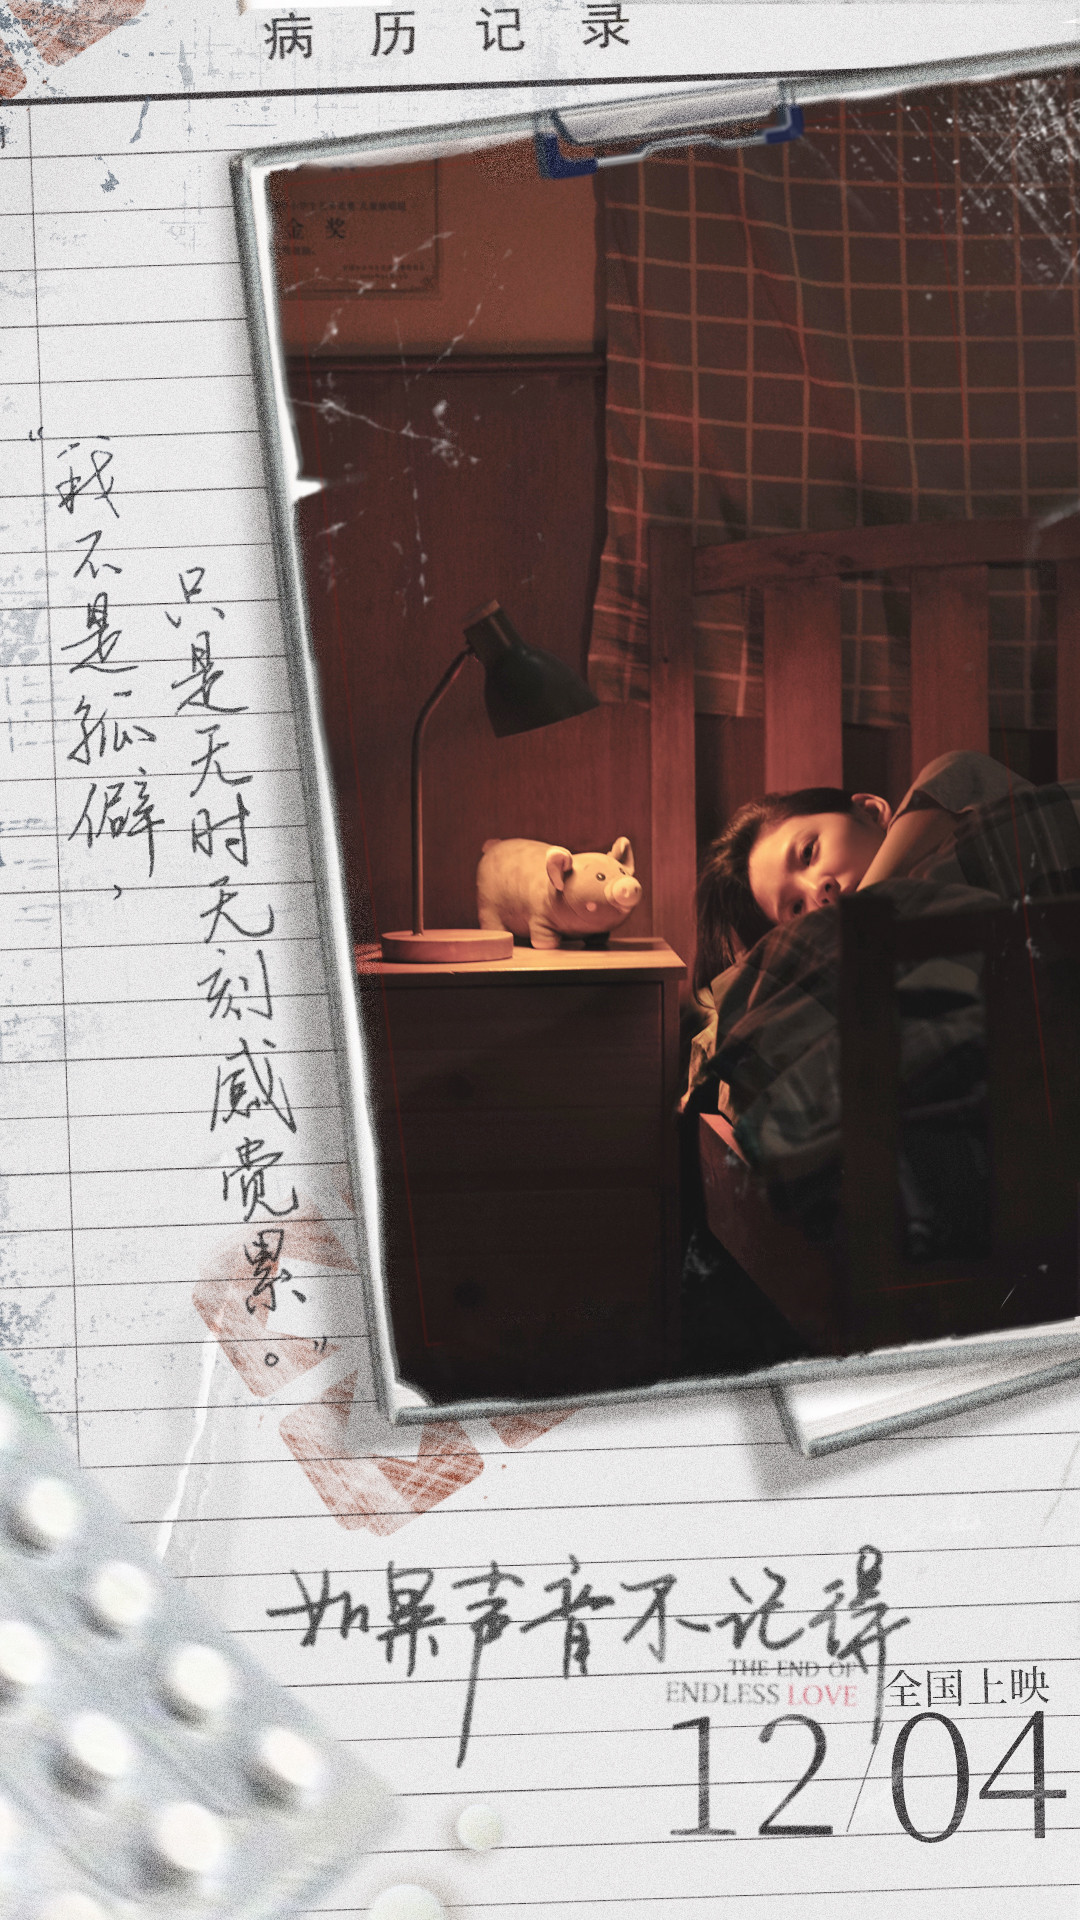 病历记录
金奖
“我不是孤僻，
只是无时无刻感觉累。”
如果声音不记得
THE END OF
ENDLESS LOVE
全国上映
12/04